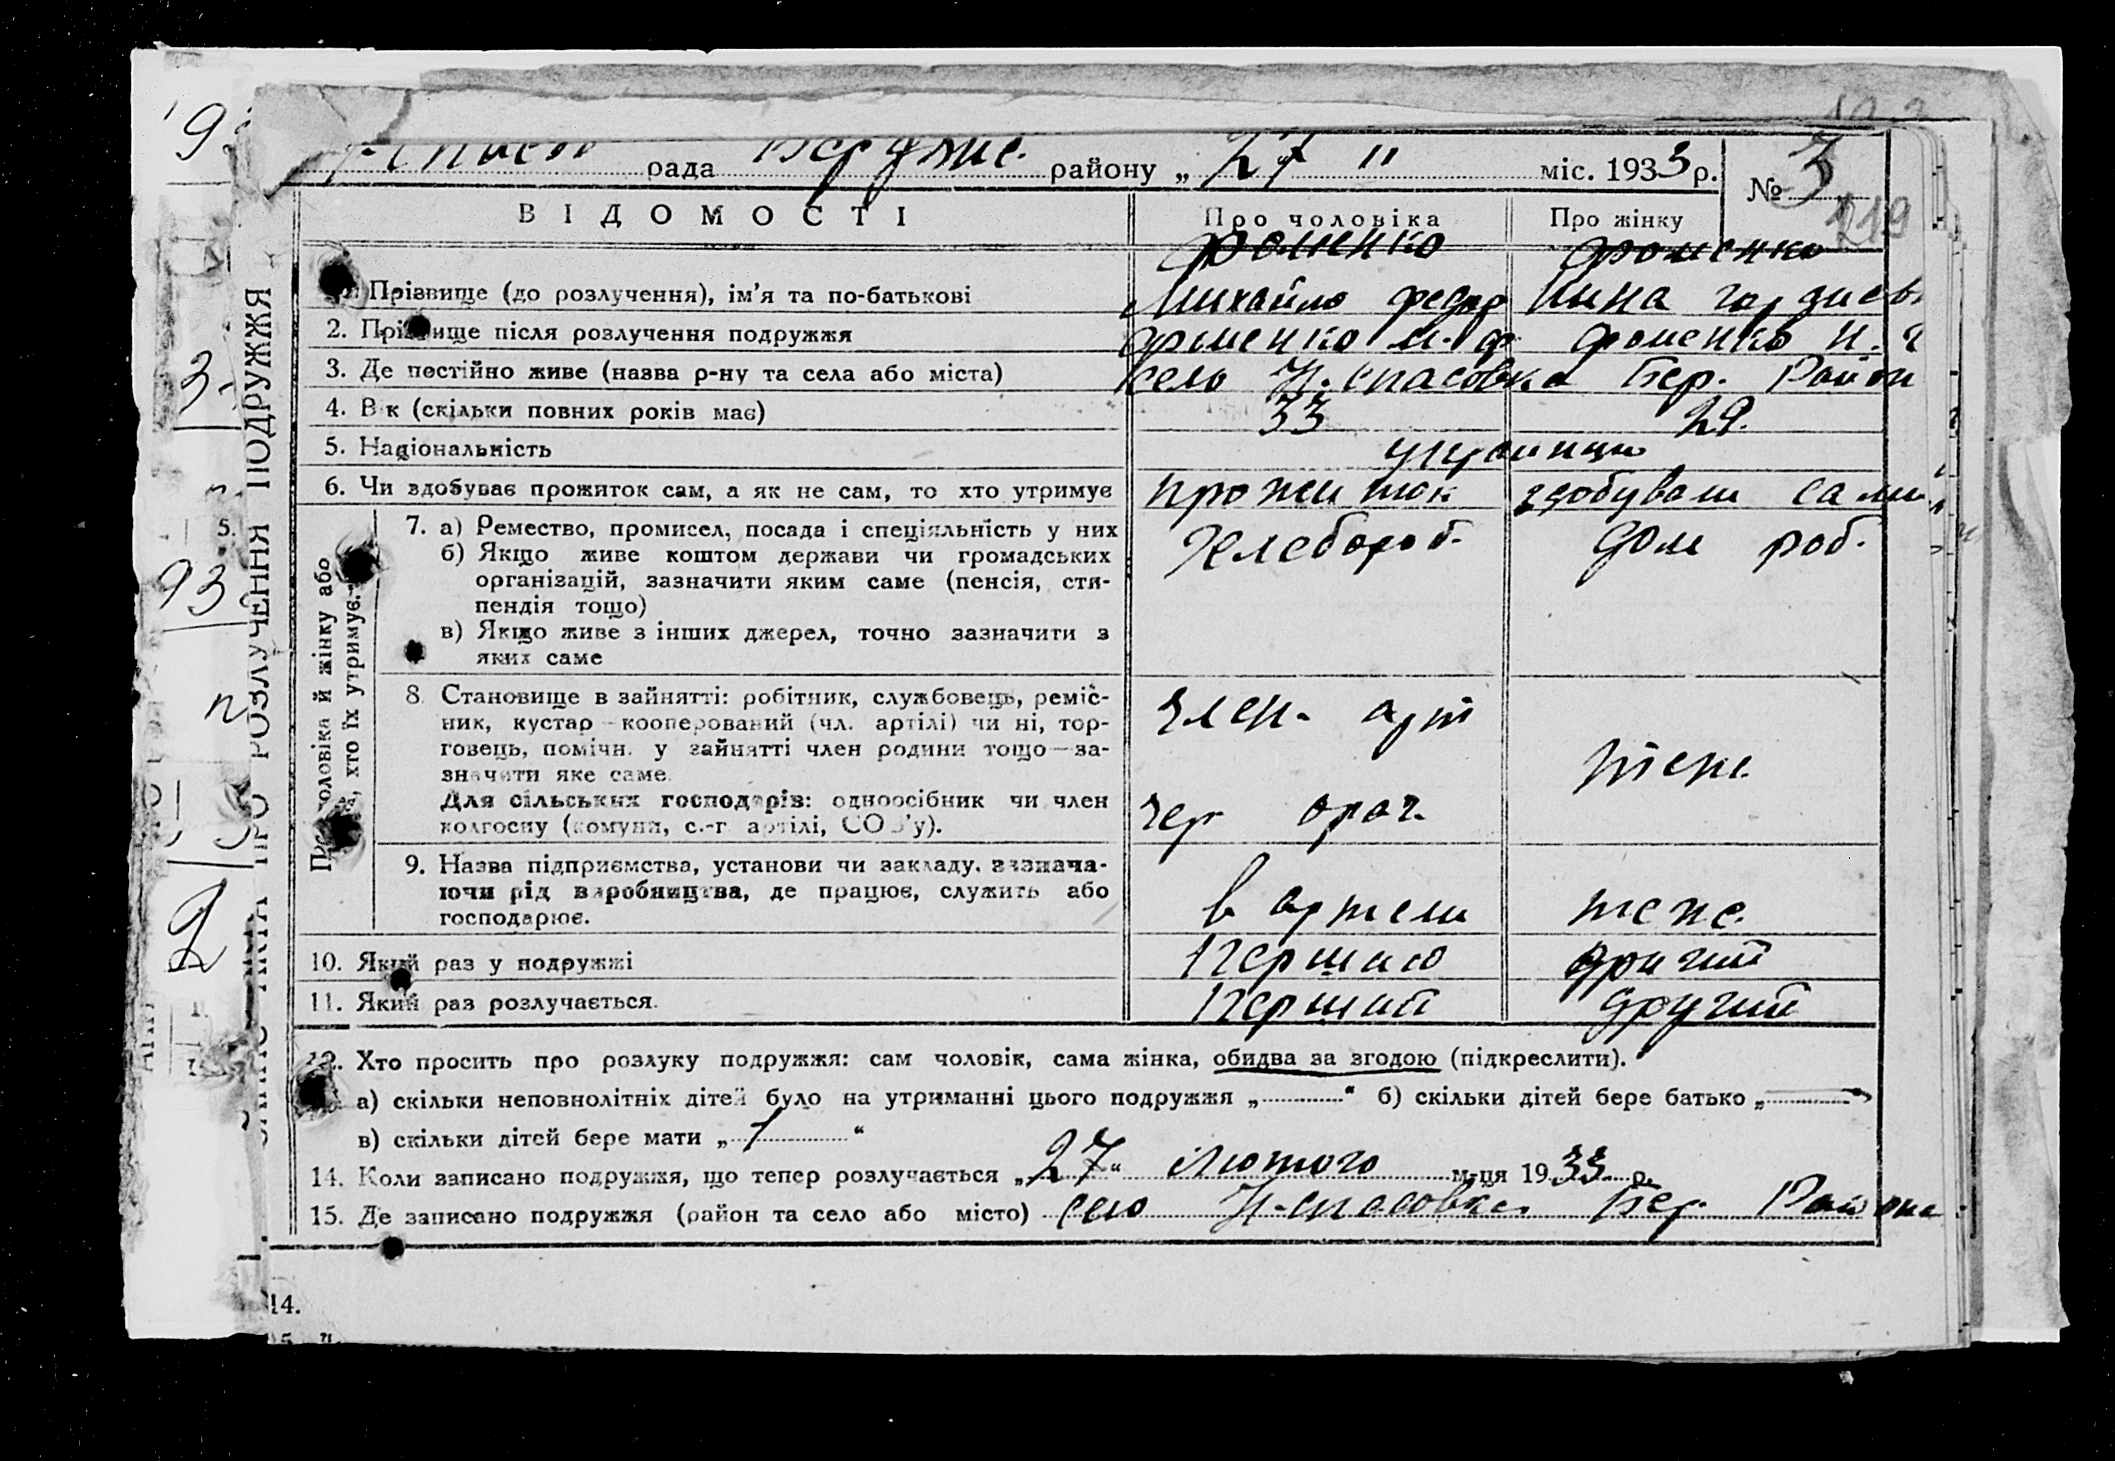 рада Бердянс. району „27 " II міс. 1933 р. № 3
219
ВІДОМОСТІ Про чоловіка Про жінку
Фоменко Фоменко
1. Прізвище (до розлучення), ім'я та по-батькові Михайло Федор
2. Прізвище після розлучення подружжя Фоменко М. Ф Фоменко Н. Г
3. Де постійно живе (назва р-ну та села або міста) село Н. Спасовка Бер. Район
4. Вік (скільки повних років має) 33 29.
5. Національність украинцы
6. Чи здобуває прожиток сам, а як не сам, то хто утримує прожиток здобували сами
7. а) Ремество, промисел, посада і спеціяльність у них Хлебороб. дом роб.
б) Якщо живе коштом держави чи громадських
організацій, зазначити яким саме (пенсія, сти-
пендія тощо)
в) Якщо живе з інших джерел, точно зазначити з
яких саме
8. Становище в зайнятті: робітник, службовець, реміс- член. арт
ник, кустар—кооперований (чл. артілі) чи ні, тор-
говець, помічн. у зайнятті член родини тощо—за- теж.
значити яке саме.
Для сільських господарів: одноосібник чи член
колгоспу (комуни, с.-г. артілі, СОЗ'у).
9. Назва підприємства, установи чи закладу, зазнача-
ючи рід виробництва, де працює, служить або в артели теже.
господарює.
10. Який раз у подружжі другий
11. Який раз розлучається. перший другий
12. Хто просить про розлуку подружжя: сам чоловік, сама жінка, обидва за згодою (підкреслити).
а) скільки неповнолітніх дітей було на утриманні цього подружжя „ " б) скільки дітей бере батько „ —
в) скільки дітей бере мати „ 1 "
14. Коли записано подружжя, що тепер розлучається „27" лютого м-ця 1933 р.
15. Де записано подружжя (район та село або місто) село Н-спасовка Бер. Района
14.
ЗАПИС АКТА ПРО РОЗЛУЧЕННЯ ПОДРУЖЖЯ
Про чоловіка й жінку або
, хто їх утримує.